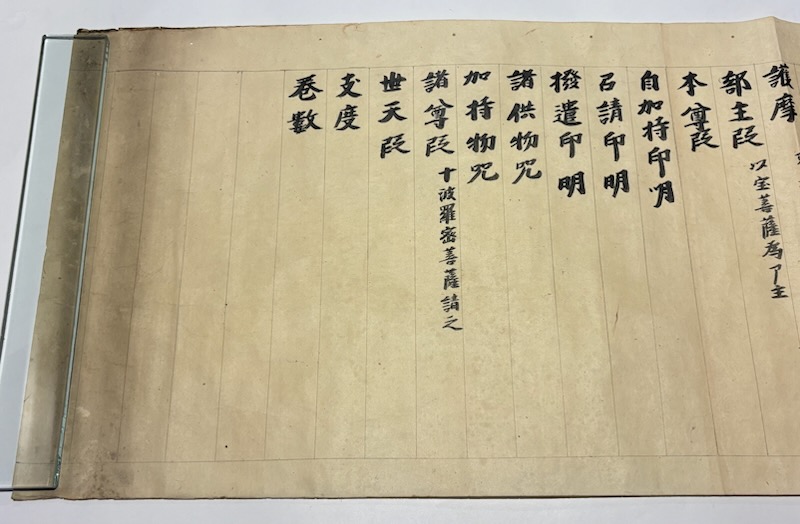 護摩
部主段 以宝菩薩為了主
本尊段
自加持印明
召請印明
撥遣印明
諸供物咒
加持物咒
諸尊段 十波羅密菩薩請之
世天段
支度
卷數